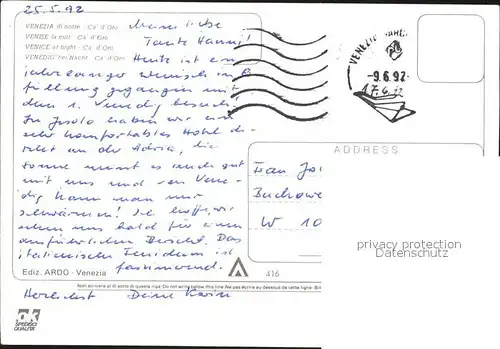 25.5.92
VENEZIA di notte - Ca' d'Oro
VENISE la nuit - Ca' d'Oro
VENICE at night - Ca' d'Oro
VENEDIG bei Nacht - Ca' d'Oro
Meine liebe
Tante Hanni!
Heute ist ein
jahrelanger Wunsch in Er-
füllung gegangen mit
dem 1. Venedig besuch.
In Jesolo haben wir ein
sehr komfortables Hotel di-
rekt an der Adria, die
Sonne meint es auch gut
mit uns und von Vene-
dig kann man nur
schwärmen! Ich hoffe, wir
sehen uns bald für einen
ausführlichen Bericht. Das
italienische Feuidum ist
faszinierend.
Herzlichst Deine Karin
VENEZIA
-9.6.92-
17.6.92
ADDRESS
Frau
W 10
privacy protection
Datenschutz
Ediz. ARDO - Venezia
416
Non scrivere al di sotto di questa riga - Do not writing below this line - Veuillez ne pas écrire au dessous de cette ligne - Bit
SPEDISCI
QUALITA'